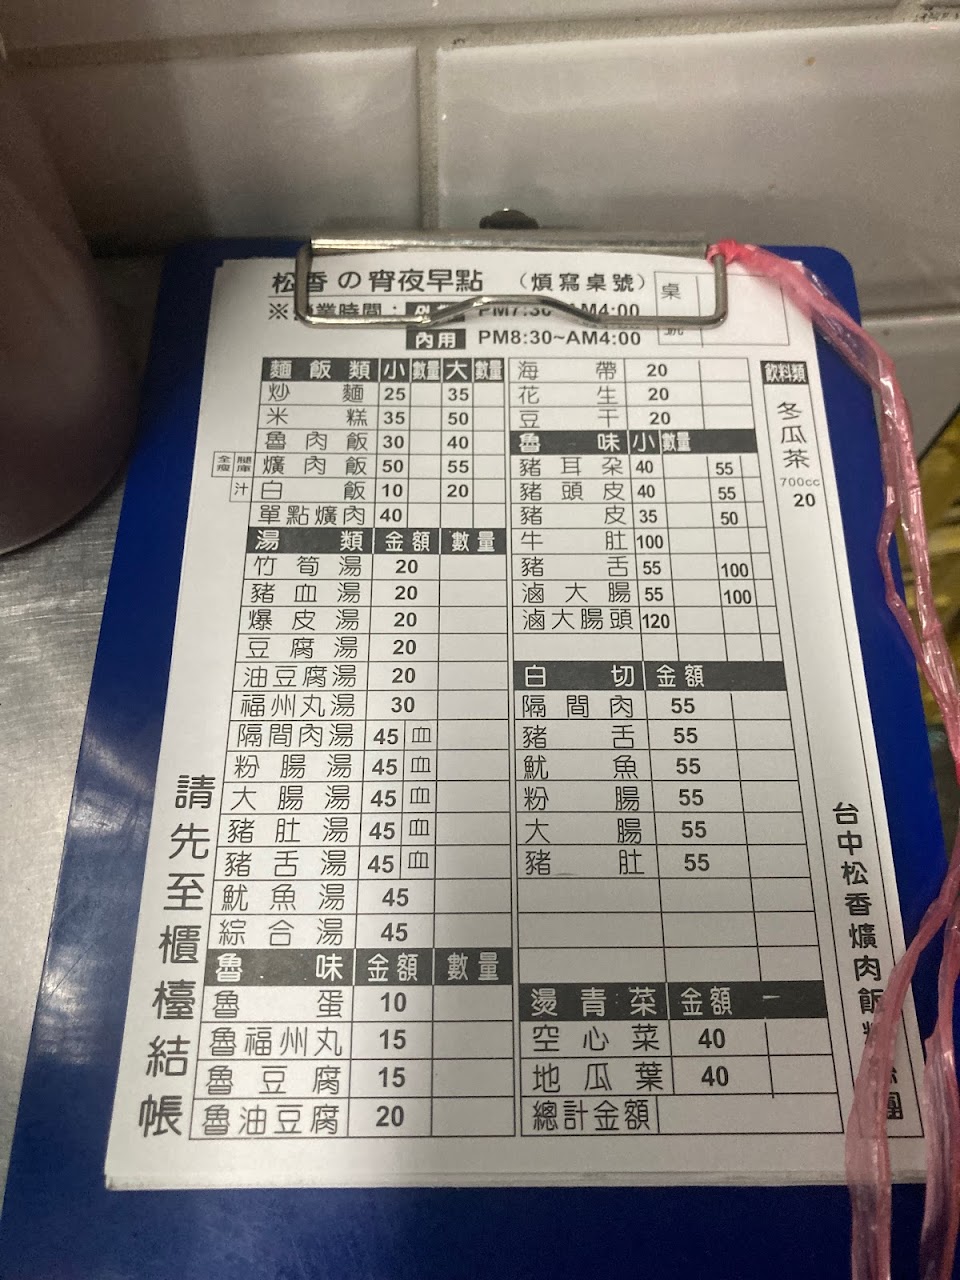 松香の宵夜早點 （煩寫桌號） 桌
※營業時間： PM7:30 AM4:00
內用 PM8:30~AM4:00
麵飯類 小 數量 大 數量
炒麵 25 35
米糕 35 50
魯肉飯 30 40
全瘦 腿庫 爌肉飯 50 55
汁 白飯 10 20
單點爌肉 40
湯類 金額 數量
竹筍湯 20
豬血湯 20
爆皮湯 20
豆腐湯 20
油豆腐湯 20
福州丸湯 30
隔間肉湯 45 血
粉腸湯 45 血
大腸湯 45 血
豬肚湯 45 血
豬舌湯 45 血
魷魚湯 45
綜合湯 45
魯味 金額 數量
魯蛋 10
魯福州丸 15
魯豆腐 15
魯油豆腐 20
海帶 20
花生 20
豆干 20
魯味 小 數量
豬耳朵 40 55
豬頭皮 40 55
豬皮 35 50
牛肚 100
豬舌 55 100
滷大腸 55 100
滷大腸頭 120
白切 金額
隔間肉 55
豬舌 55
魷魚 55
粉腸 55
大腸 55
豬肚 55
燙青菜 金額
空心菜 40
地瓜葉 40
總計金額
飲料類
冬瓜茶
700cc
20
台中松香爌肉飯
團
請先至櫃檯結帳